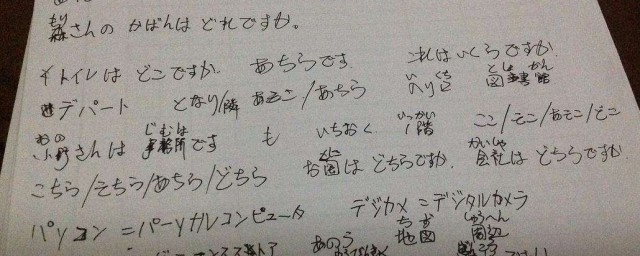 森さんの かばんは どれですか。
トイレは どこですか. あちらです. これは いくらですか.
デパート となり/隣 あそこ/あちら 入り口 図書館
小野さんは 事務所です も いちおく. 1階 ここ/そこ/あそこ/どこ
こちら/そちら/あちら/どちら お国は どちらですか. 会社は どちらですか.
パソコン =パーソナルコンピュータ デジカメ =デジタルカメラ
あのう 地図 周辺